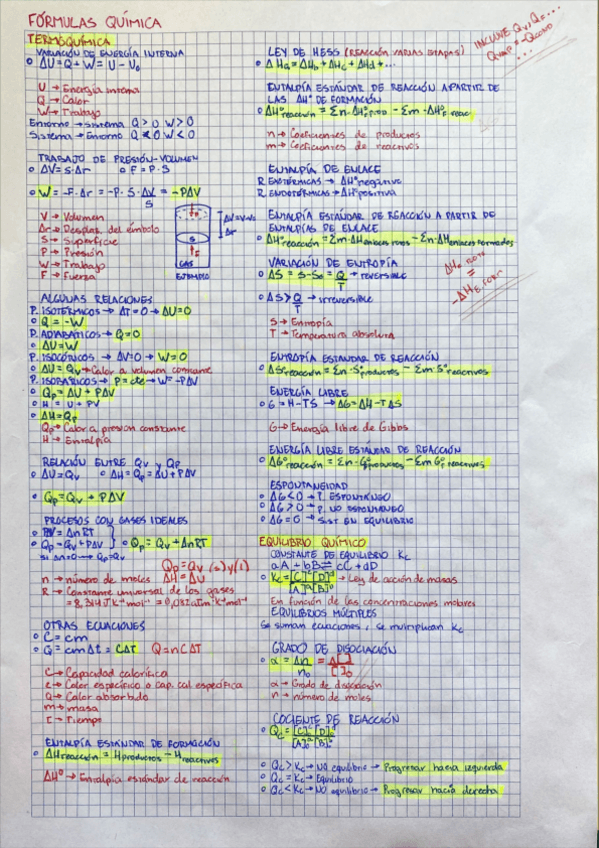 FÓRMULAS QUÍMICA
TERMOQUÍMICA
VARIACIÓN DE ENERGÍA INTERNA
ΔU = Q + W = U - U₀
U → Energía interna
Q → Calor
W → Trabajo
Entorno → Sistema Q > 0 W > 0
Sistema → Entorno Q < 0 W < 0
TRABAJO DE PRESIÓN-VOLUMEN
ΔV = S·Δr F = P·S
W = -F·Δr = -P·S·ΔV/S = -PΔV
V → Volumen
Δr → Desplas. del émbolo
S → Superficie
P → Presión
W → Trabajo
F → Fuerza
Δr
S
F
GAS
EJEMPLO
ALGUNAS RELACIONES
P. ISOTÉRMICOS → ΔT = 0 → ΔU = 0
Q = -W
P. ADIABÁTICOS → Q = 0
ΔU = W
P. ISOCÓRICOS → ΔV = 0 → W = 0
ΔU = Qv → Calor a volumen constante
P. ISOBÁRICOS → P = cte → W = -PΔV
Qp = ΔU + PΔV
H = U + PV
ΔH = Qp
Qp → Calor a presión constante
H → Entalpía
RELACIÓN ENTRE Qv y Qp
ΔU = Qv ΔH = Qp = ΔU + PΔV
Qp = Qv + PΔV
PROCESOS CON GASES IDEALES
PV = ΔnRT
Qp = Qv + PΔV } Qp = Qv + ΔnRT
Si Δn = 0 → Qp = Qv
Qp = Qv (s) y (l)
ΔH = ΔU
n → número de moles
R → Constante universal de los gases
= 8,314 J K⁻¹ mol⁻¹ = 0,082 atm l K⁻¹ mol⁻¹
OTRAS ECUACIONES
C = cm
Q = cmΔt = CΔT Q = nCΔT
C → Capacidad calorífica
c → Calor específico o cap. cal específica
Q → Calor absorbido
m → masa
t → Tiempo
ENTALPÍA ESTÁNDAR DE FORMACIÓN
ΔH reacción = H productos - H reactivos
ΔH⁰ → Entalpía estándar de reacción
LEY DE HESS (REACCIÓN VARIAS ETAPAS)
ΔHa = ΔHb + ΔHc + ΔHd + ...
INCLUYE Qv, Qp...
ENTALPÍA ESTÁNDAR DE REACCIÓN A PARTIR DE
LAS ΔH⁰ DE FORMACIÓN
ΔH⁰ reacción = Σn·ΔH⁰f prod - Σm·ΔH⁰f reac
n → Coeficientes de productos
m → Coeficientes de reactivos
ENTALPÍA DE ENLACE
R. EXOTÉRMICAS → ΔH⁰ negativa
R. ENDOTÉRMICAS → ΔH⁰ positiva
ENTALPÍA ESTÁNDAR DE REACCIÓN A PARTIR DE
ENTALPÍAS DE ENLACE
ΔH⁰ reacción = Σm·ΔH enlaces rotos - Σn·ΔH enlaces formados
ΔHE ROTO
=
-ΔHE.FORM
VARIACIÓN DE ENTROPÍA
ΔS = S - S₀ = Q/T → reversible
ΔS > Q/T → irreversible
S → Entropía
T → Temperatura absoluta
ENTROPÍA ESTÁNDAR DE REACCIÓN
ΔS⁰ reacción = Σn·S⁰ productos - Σm·S⁰ reactivos
ENERGÍA LIBRE
G = H - TS → ΔG = ΔH - TΔS
G → Energía libre de Gibbs
ENERGÍA LIBRE ESTÁNDAR DE REACCIÓN
ΔG⁰ reacción = Σn·G⁰ productos - Σm G⁰f reactivos
ESPONTANEIDAD
ΔG < 0 → P. ESPONTÁNEO
ΔG > 0 → P. NO ESPONTÁNEO
ΔG = 0 → SIST EN EQUILIBRIO
EQUILIBRIO QUÍMICO
CONSTANTE DE EQUILIBRIO Kc
aA + bB ⇌ cC + dD
Kc = [C]ᶜ[D]ᵈ / [A]ᵃ[B]ᵇ → Ley de acción de masas
En función de las concentraciones molares
EQUILIBRIOS MÚLTIPLES
Se suman ecuaciones, se multiplican Kc
GRADO DE DISOCIACIÓN
α = Δn/n₀ = Δ[ ]/[ ]₀
α → Grado de disociación
n → número de moles
COCIENTE DE REACCIÓN
Qc = [C]ᶜ[D]ᵈ / [A]ᵃ[B]ᵇ
Qc > Kc → NO equilibrio → Progresar hacia izquierda
Qc = Kc → Equilibrio
Qc < Kc → NO equilibrio → Progresar hacia derecha